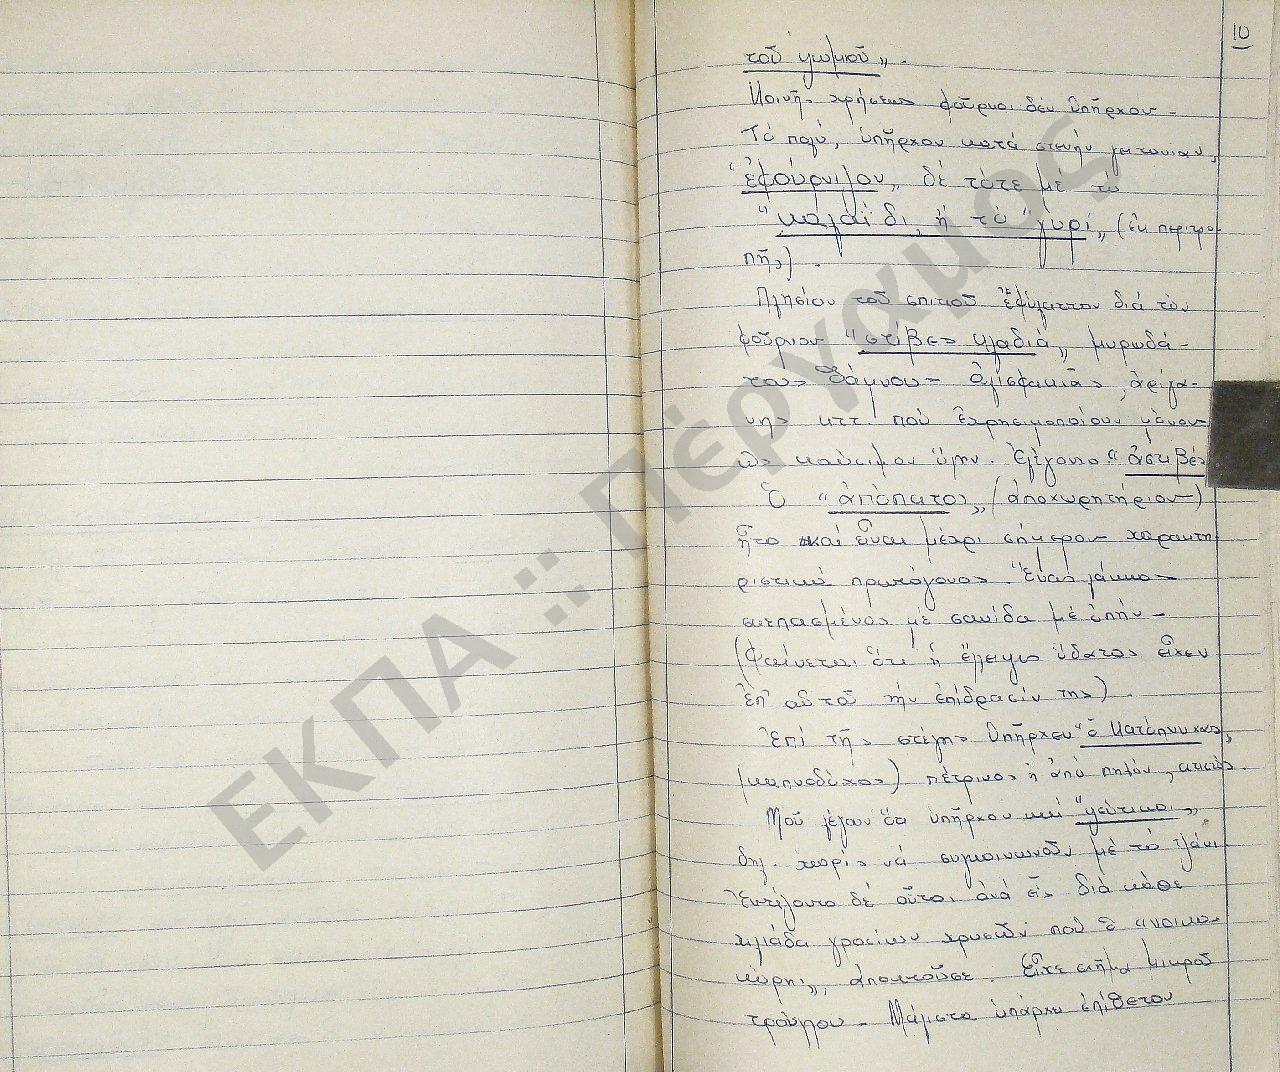 10
τοῦ ψωμιοῦ„.
Κοινῆς χρήσεως φοῦρνοι δέν ὑπῆρχον -
Τό πολύ, ὑπῆρχον κατά στενήν γειτονίαν,
"ἐφούρνιζον„ δέ τότε μέ τό
"καλαΐδι, ἤ τό "γυρί„ (ἐκ περιτρο-
πῆς).
Πλησίον τοῦ σπιτιοῦ ἐφύλαττον διά τόν
φοῦρνον "στίβες κλαδιά„ μυρωδά-
τους θάμνους ἀλισφακιᾶς, ἀρίγα-
νης κττ. πού ἐχρησιμοποίουν μόνον
ὡς καύσιμον ὕλην. Ἐλέγοντο "ἀστιβές
Ὁ "ἀπόπατος„ (ἀποχωρητήριον)
ἦτο καί εἶναι μέχρι σήμερον χαρακτη-
ριστικά πρωτόγονος. Ἕνας λάκκος
σκεπασμένος μέ σανίδα μέ ὀπήν -
(Φαίνεται ὅτι ἡ ἔλειψις ὕδατος εἶχεν
ἐπ' αὐτοῦ τήν ἐπίδρασίν της).
Ἐπί τῆς στέγης ὑπῆρχεν "ὁ Κατόπνυχας,
(καπνοδόχος) πέτρινος ἤ ἀπό πηλόν,
Μοῦ λέγουν ὅτι ὑπῆρχον καί "ψεύτικοι„
δηλ. χωρίς νά συγκοινωνοῦν μέ τό τζάκι
Ἐκτίζοντο δέ οὗτοι ἀνά εἷς διά κάθε
χιλιάδα γροσίων χρυσῶν πού ὁ "νοικο-
κύρης„ ἀποκτοῦσε. Εἶχε σχῆμα μικροῦ
τρούλλου - Μάλιστα ὑπάρχει ἐπίθετον
ΕΚΠΑ :: Πέργαμος